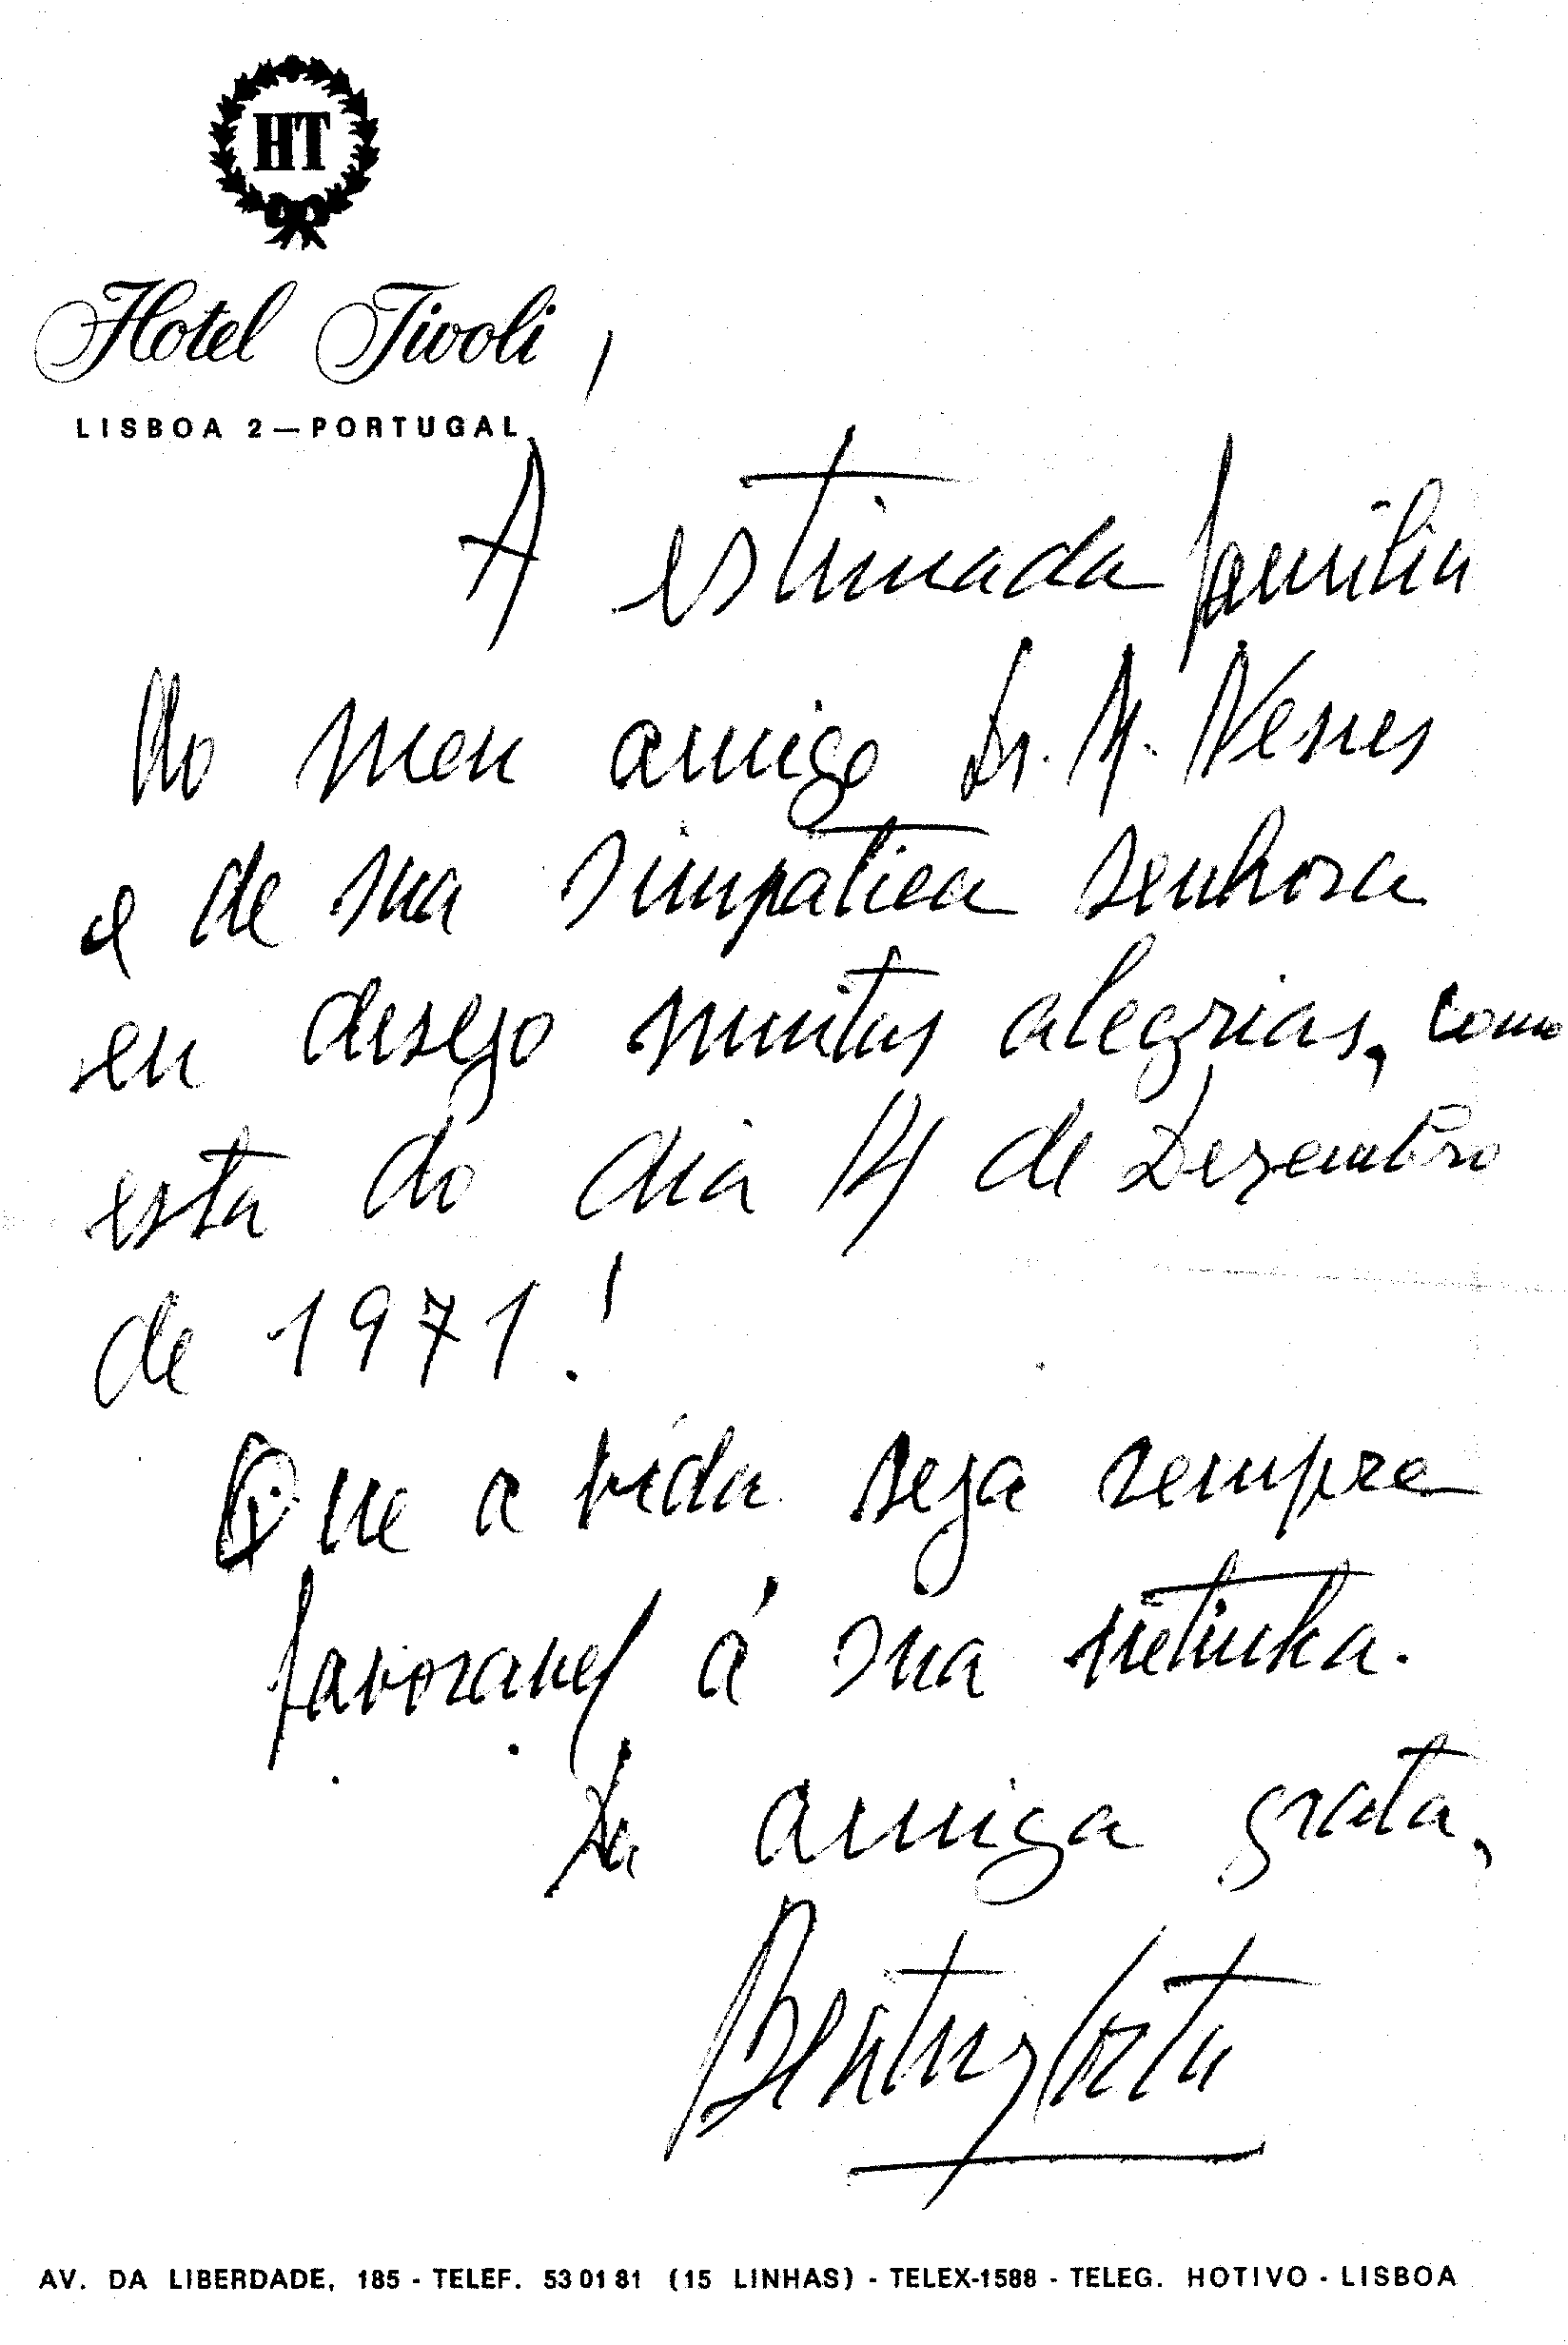 HT
Hotel Tivoli
LISBOA 2—PORTUGAL
A estimada família
do meu amigo Dr. M. Neves
e de sua simpática senhora
eu desejo muitas alegrias, como
esta do dia 14 de Dezembro
de 1971!
Que a vida seja sempre
favoravel á sua netinha.
Da amiga grata,
Beatriz Costa
AV. DA LIBERDADE, 185 - TELEF. 53 01 81 (15 LINHAS) - TELEX-1588 - TELEG. HOTIVO - LISBOA